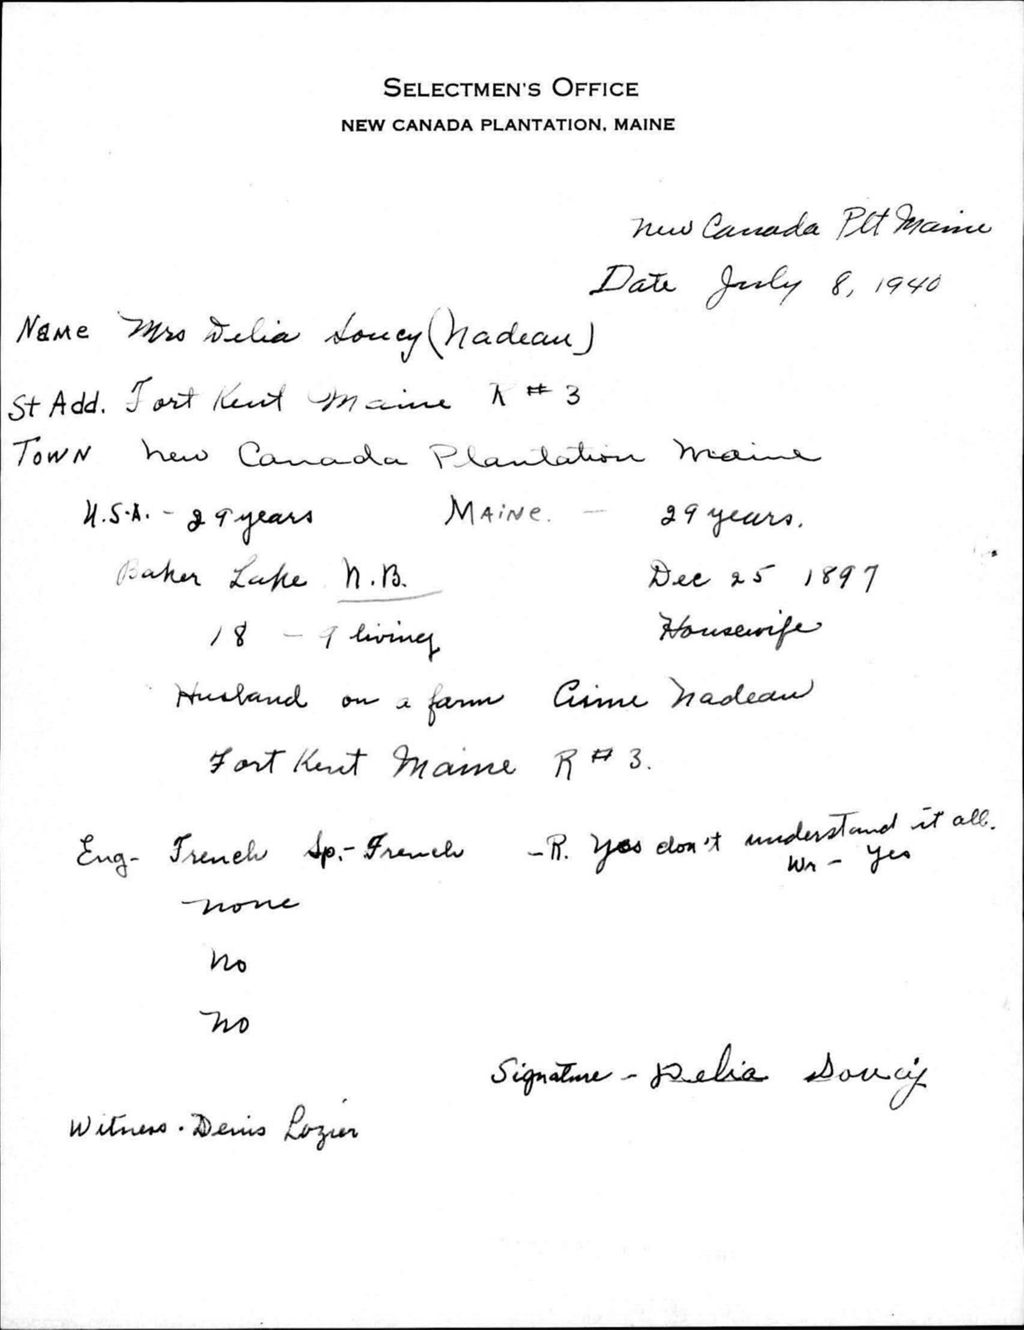 SELECTMEN'S OFFICE
NEW CANADA PLANTATION, MAINE
New Canada Plt Maine
Date July 8, 1940
Name Mrs Delia Soucy (Nadeau)
St Add. Fort Kent Maine R # 3
Town New Canada Plantation Maine
U.S.A. - 29 years Maine. - 29 years.
Baker Lake N.B. Dec 25 1897
18 - 9 living Housewife
Husband on a farm Cime Nadeau
Fort Kent Maine R # 3.
Eng- French Sp.- French - R. Yes don't understand it all.
Wr - Yes
None
No
No
Signature - Delia Soucy
Witness . Denis Lozier